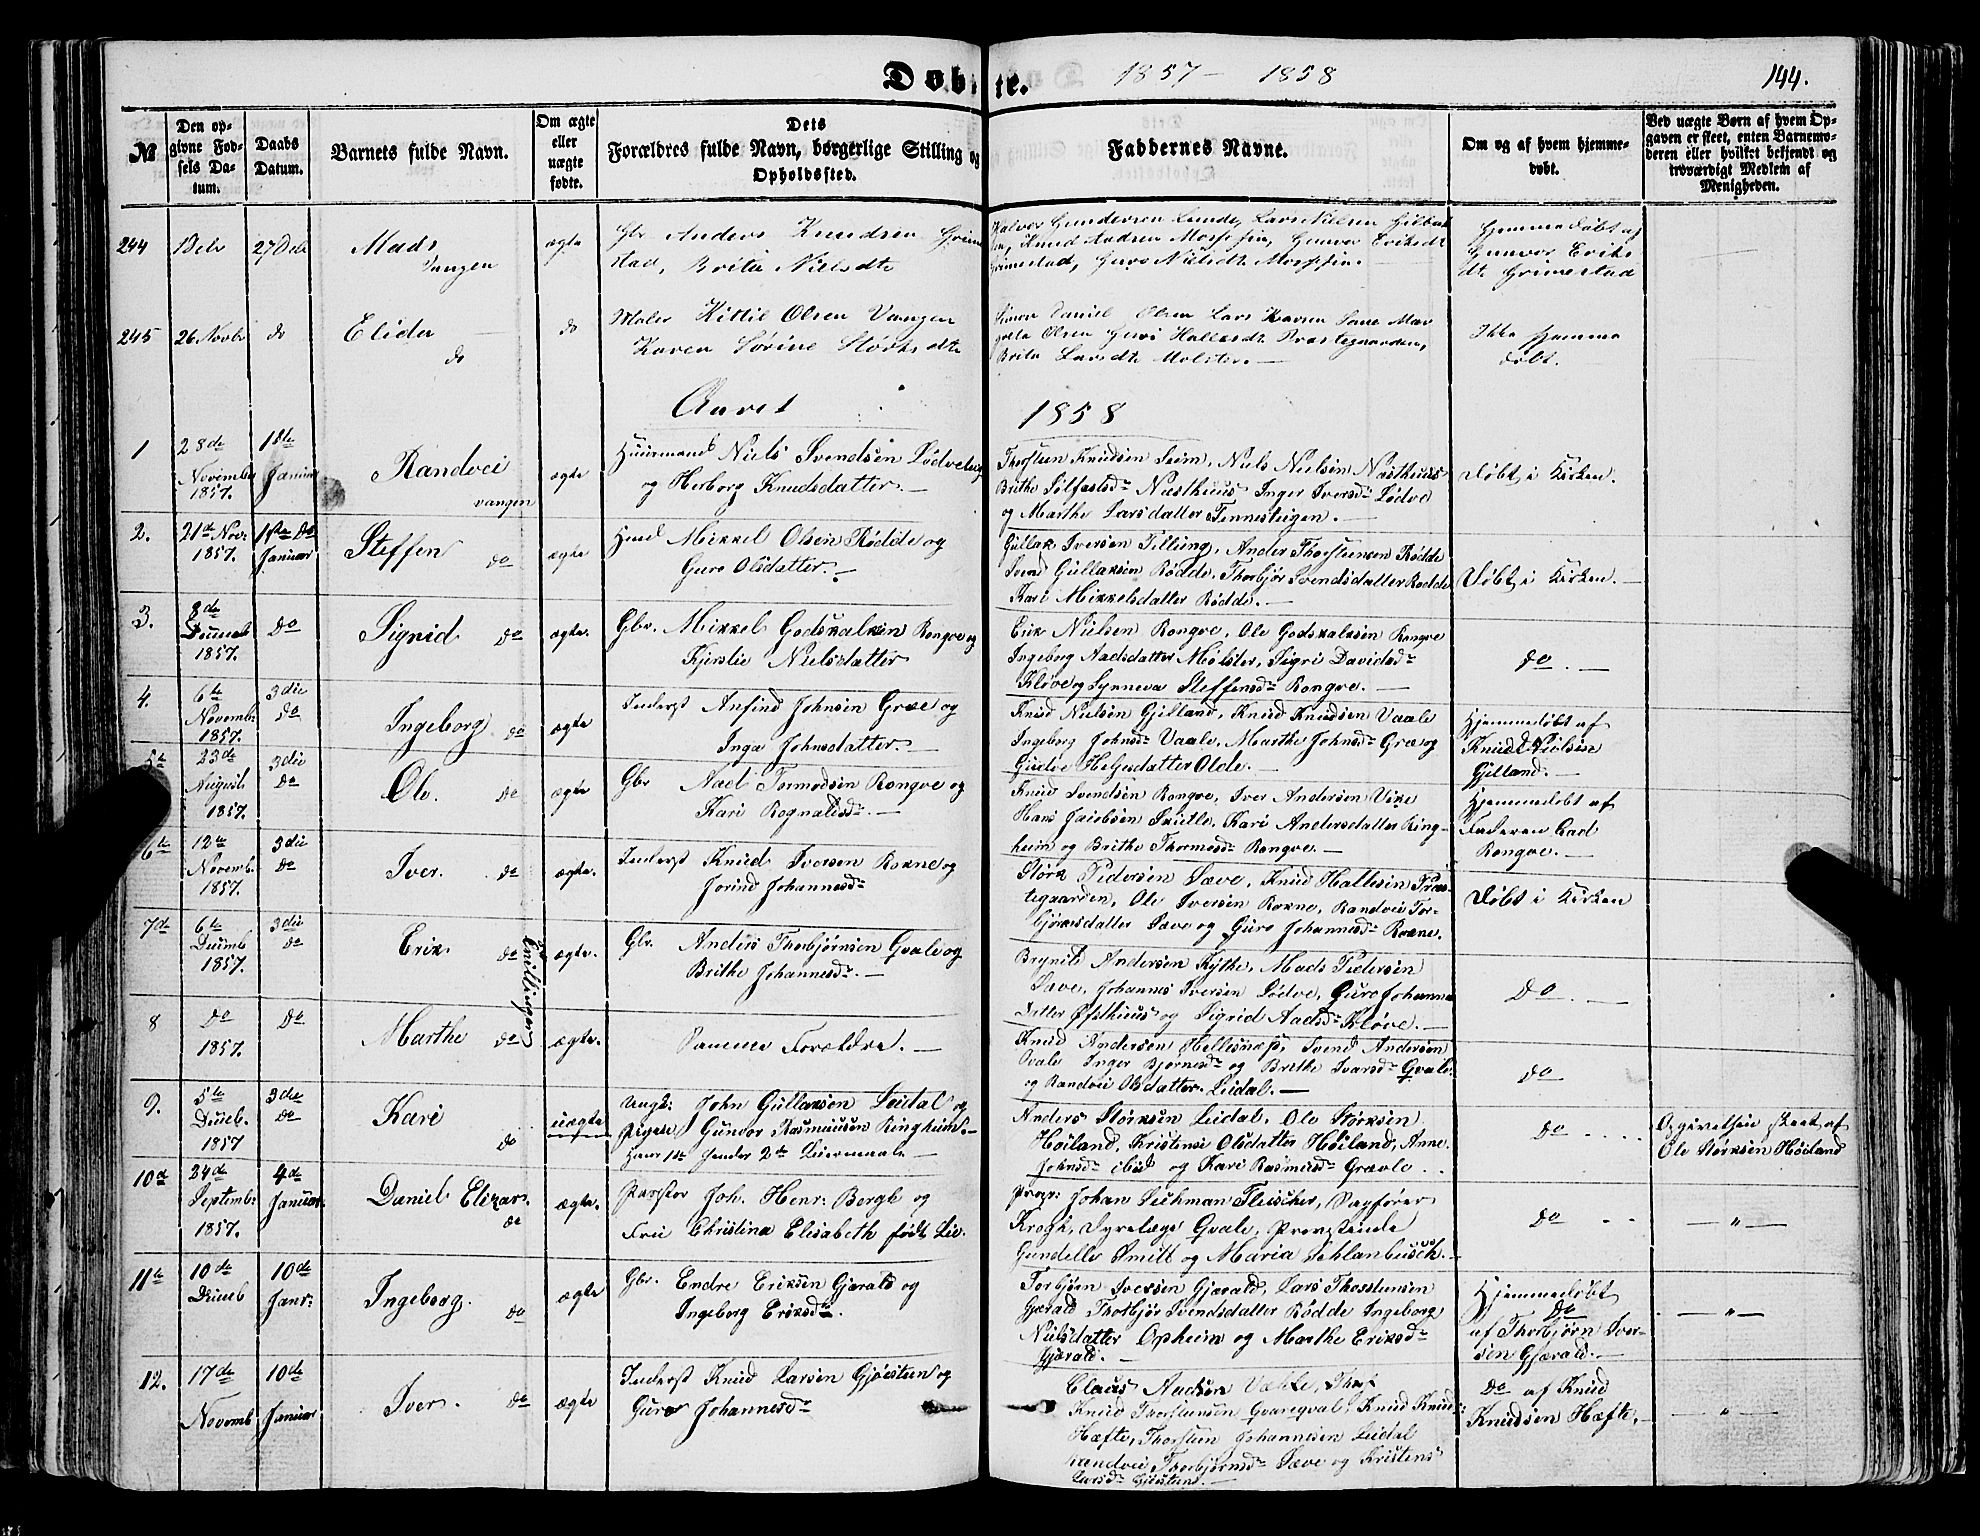 Døbte. 1857 - 1858 144.
№
Den opgivne Fødsels Datum.
Daabs Datum.
Barnets fulde Navn.
Om ægte eller uægte fødte.
Dets Forældres fulde Navn, borgerlige Stilling og Opholdssted.
Faddernes Navne.
Om og af hvem hjemmedøbt.
Ved uægte Børn af hvem Opgaven er skeet, enten Barnemoderen eller hvilket bekjendt og troværdigt Medlem af Menigheden.
244 1 Debr 27 Deb Mads Vangen ægte Gbr Anders Knudsen Grime
stad, Brita Nielsdtr
Halvor Gundersen Lunde, Lars Nilsen
Knud Andersen Gunvor Eriksdt
Grimestad, Guro Nielsdt
Hjemmedøbt af
Gunvor Eriks
dt. Grimestad
245 26 Novbr do Elida do do Maler Kittil Olsen Vangen
Karen Sørine Størksdtr
Daniel Olsen Lars Larsen
Olsen Guri Hallesdt Præstegaarden,
Brita Larsdtr Mølster. —
Ikke hjemme
døbt.
Aaret 1858
1 28de November 1857. 1ste Januar Randvei vangen ægte Huusmand Niels Svendsen Lødve
og Herborg Knudsdatter. —
Thorsteen Knudsen Seim, Niels Nielsen Næsthuus
Brithe Sjøfastsdr Næsthuus Inger Iversdr Lødve
og Marthe Larsdatter Finnesteigen. —
Døbt i Kirken.
2. 21de Nov: 1857. 1ste Do Januar Steffen do ægte Huusd Mikkel Olsen Rødde og
Guro Olsdatter. —
Gullak Iversen Tillung, Anders Thorsteinsen Rødde
Svend Gullaksen Rødde, Thorbjør Svendsdatter Rødde
Kari Mikkelsdatter Rødde. —
Døbt i Kirken. —
3. 8de Decemb 1857. Do Sigrid do ægte. Gbr. Mikkel Godskalksen Rongve og
Kjerstie Nielsdatter
Erik Nielsen Rongve, Ole Godskalksen Rongve
Ingeborg Aadsdatter Mølster, Sigri Davidsdr
Kløve og Synneva Steffensdr Rongve. —
do. —
4. 6te Novembr 1857. 3die do Ingeborg. do ægte Inderst Anfind Johnsen Græe og
Inga Johnsdatter. —
Knud Nielsen Gjelland, Knud Knudsen Vaale
Ingeborg Johnsdr Vaale, Marthe Johnsdr Græ og
Gudve Helgesdatter Olde. —
Hjemmedøbt af
Knud Nielsen
Gjelland. —
5te 23de August 1857. 3die do Ole. do ægte Gbr Aad Tormodsen Rongve og
Kari Rognaldsdr. —
Knud Svendsen Rongve, Iver Andersen Vike
Hans Jacobsen Skutle, Kari Andersdatter Ring-
heim og Brithe Thormosdr Rongve. —
Hjemmedøbt af
Faderen Aad
Rongve. —
6te 12te Novemb. 1857. 3die do Iver. do ægte. Inderst Knud Iversen Rokne og
Jorind Johannesdr
Størk Pedersen Sæve, Knud Hallesen Præs-
tegaarden, Ole Iversen Rokne, Randvei Tor-
bjørnsdatter Sæve og Guro Johannesdr Rokne.
Døbt i Kirken
7de 6te Decemb 1857. 3die do Erik do Tvillinger ægte. Gbr. Anders Thorbjørnsen Gvale og
Brithe Johannesdr. —
Brynild Andersen Kythe, Mads Pedersen
Sæve, Johannes Iversen Lødve, Guro Johanne
datter Østhuus og Sigrid Aadsdr Kløve. —
do. —
8 do 1857. do Marthe do ægte. Samme Forældre. —
Knud Andersen Hellesnæs, Svend Andersen
Gvale Inger Bjørnesdr og Brithe Ivarsdr Gvale
og Randvei Olsdatter Leidal. —
do
9. 5te Deceb. 1857 3die do Kari do uægte Ungk: John Gullaksen Leidal og
Pigen Gunvor Rasmusen Ringheim. —
Hans 1te hendes 2de Leiermaale —
Anders Størksen Leidal, Ole Størksen
Høiland, Kristense Olsdatter Høiland, Anne
Johnsdr ibid og Kari Rasmusdr Grævle . .
do - - - -
Opgivelsen skeet af
Ole Størksen Høiland
10de 24de Septembr 1857. 4de Januar. Daniel Elezar. do ægte. Pastor Joh. Henr: Bergh og
Frue Christina Elisabeth født Lie.
Propr: Johan Seckman Fleischer, Sagfører
Krogh, Dyrelæge Gvale, Provstinde
Gundelle Smitt og Maria Schlanbusch. —
do - - — " —
11te 10de Decemb 10de Janr: Ingeborg. do ægte Gbr. Endre Eriksen Gjerald og
Ingeborg Eriksdr.
Torbjørn Iversen Gjærald, Lars Thorsteinsen
Gjærald Thorbjør Svendsdatter Rødde Ingeborg
Nielsdatter Opheim og Marthe Eriksdr
Gjærald. —
Hjemmedøbt
do
af Thorbjørn Iver-
sen Gjærald. —
— " —
12. 17de Novemb 10de Januar Iver. do ægte Inderst Knud Larsen Gjøsteen og
Guro Johannesdr
Claus Aadsen
Knud Thorsteinsen Knud Knuds
Hæfte, Thorsteen Johannesen Leidal
Randvei Thorbjørnsdr Sæve og Kristens
Larsdr Gjøsteen. —
do af Knud
Knudsen Hæfte. —
— " —